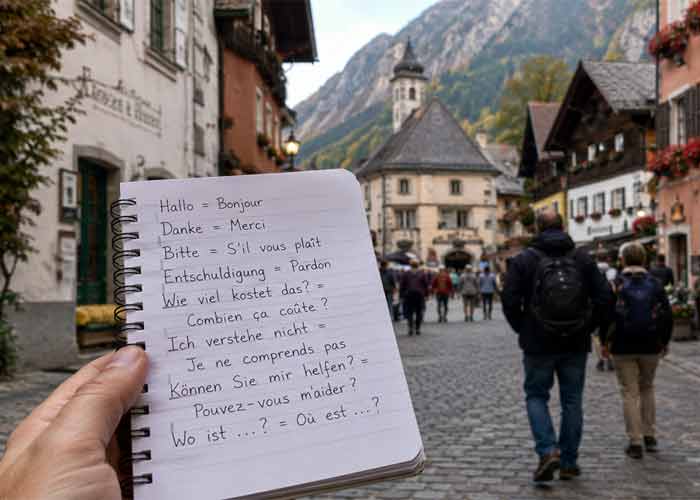 Hallo = Bonjour
Danke = Merci
Bitte = S'il vous plaît
Entschuldigung = Pardon
Wie viel kostet das? =
Combien ça coûte ?
Ich verstehe nicht =
Je ne comprends pas
Können Sie mir helfen? =
Pouvez-vous m'aider ?
Wo ist ...? = Où est ...?